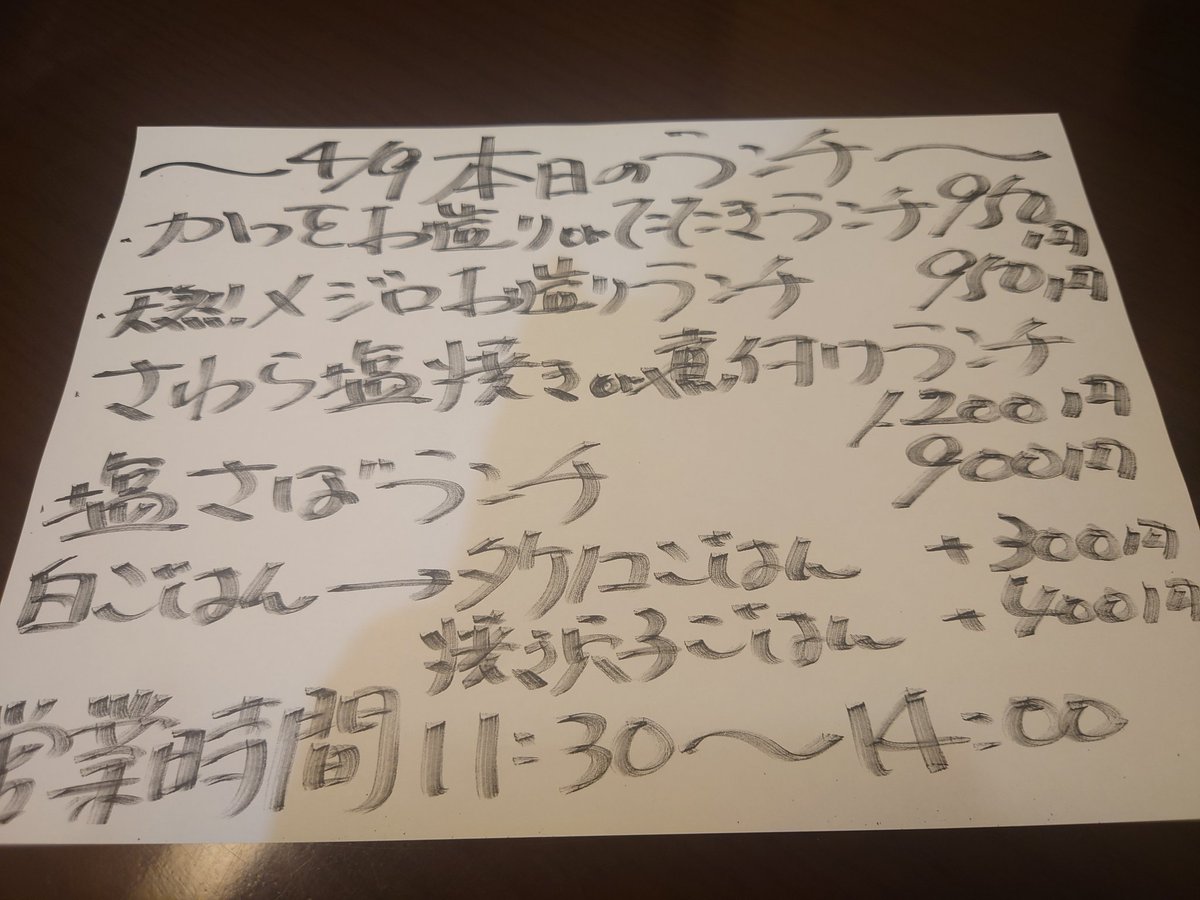 〜4/9 本日のランチ〜
・かつをお造りorたたきランチ 950円
・天然メジロお造りランチ 950円
・さわら塩焼きor煮付けランチ
1200円
・塩さばランチ 900円
白ごはん→タケノコごはん +300円
焼き穴子ごはん +400円
営業時間 11:30〜14:00